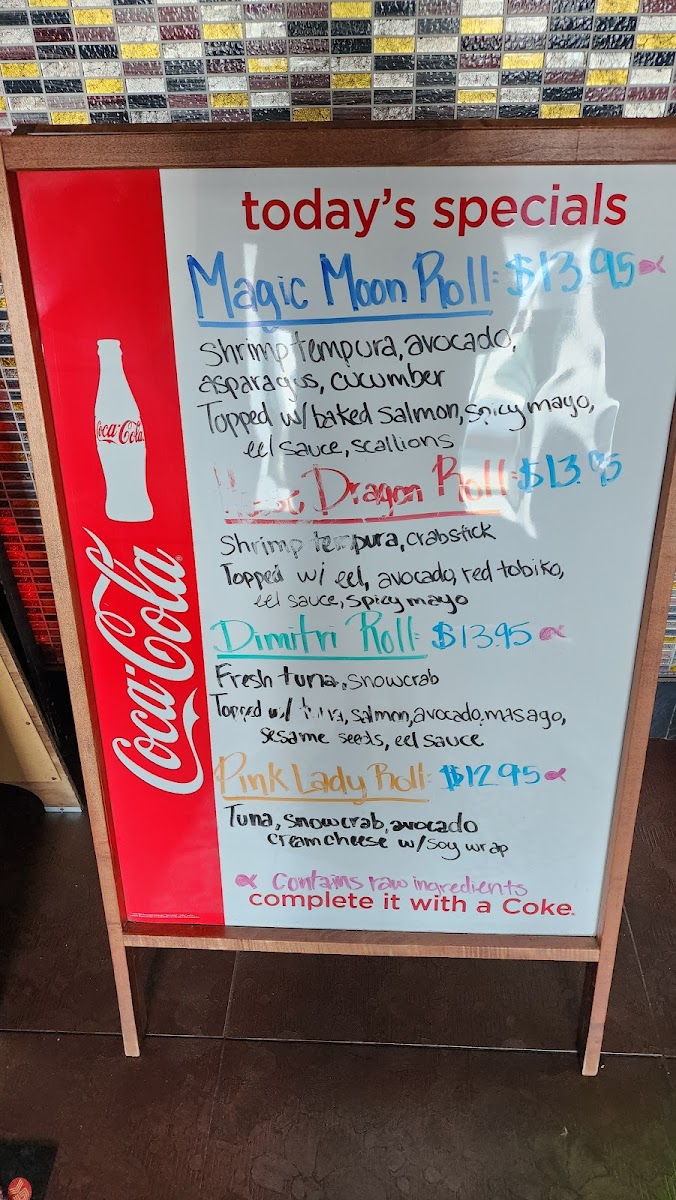 today's specials
Magic Moon Roll: $13.95
Shrimp tempura, avocado,
asparagus, cucumber
Topped w/ baked salmon, spicy mayo,
eel sauce, scallions
Dragon Roll: $13.95
Shrimp tempura, crabstick
Topped w/ eel, avocado, red tobiko,
eel sauce, spicy mayo
Dimitri Roll: $13.95
Fresh tuna, snowcrab
Topped w/ tuna, salmon, avocado, masago,
sesame seeds, eel sauce
Pink Lady Roll: $12.95
Tuna, snowcrab, avocado
cream cheese w/ soy wrap
Contains raw ingredients
complete it with a Coke.
Coca-Cola
Coca-Cola